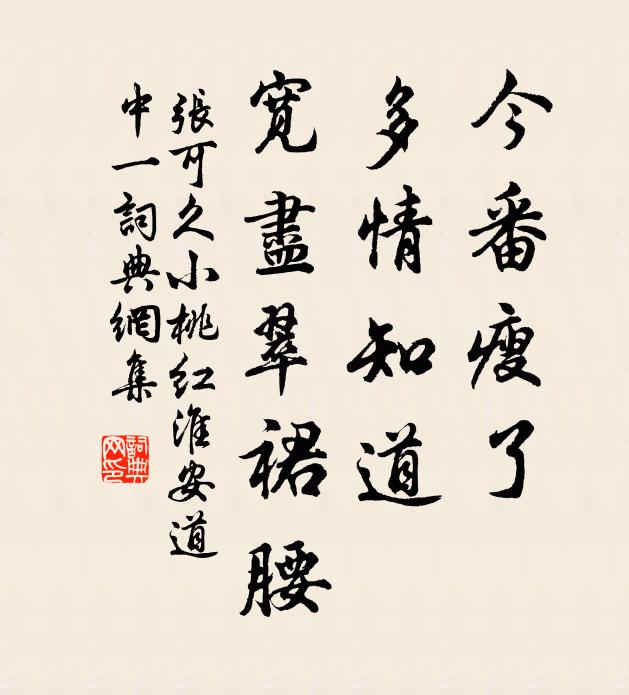 今番瘦了
多情知道
寬盡翠裙腰
張可久小桃红淮安道
中一詞典網集
詞典网印